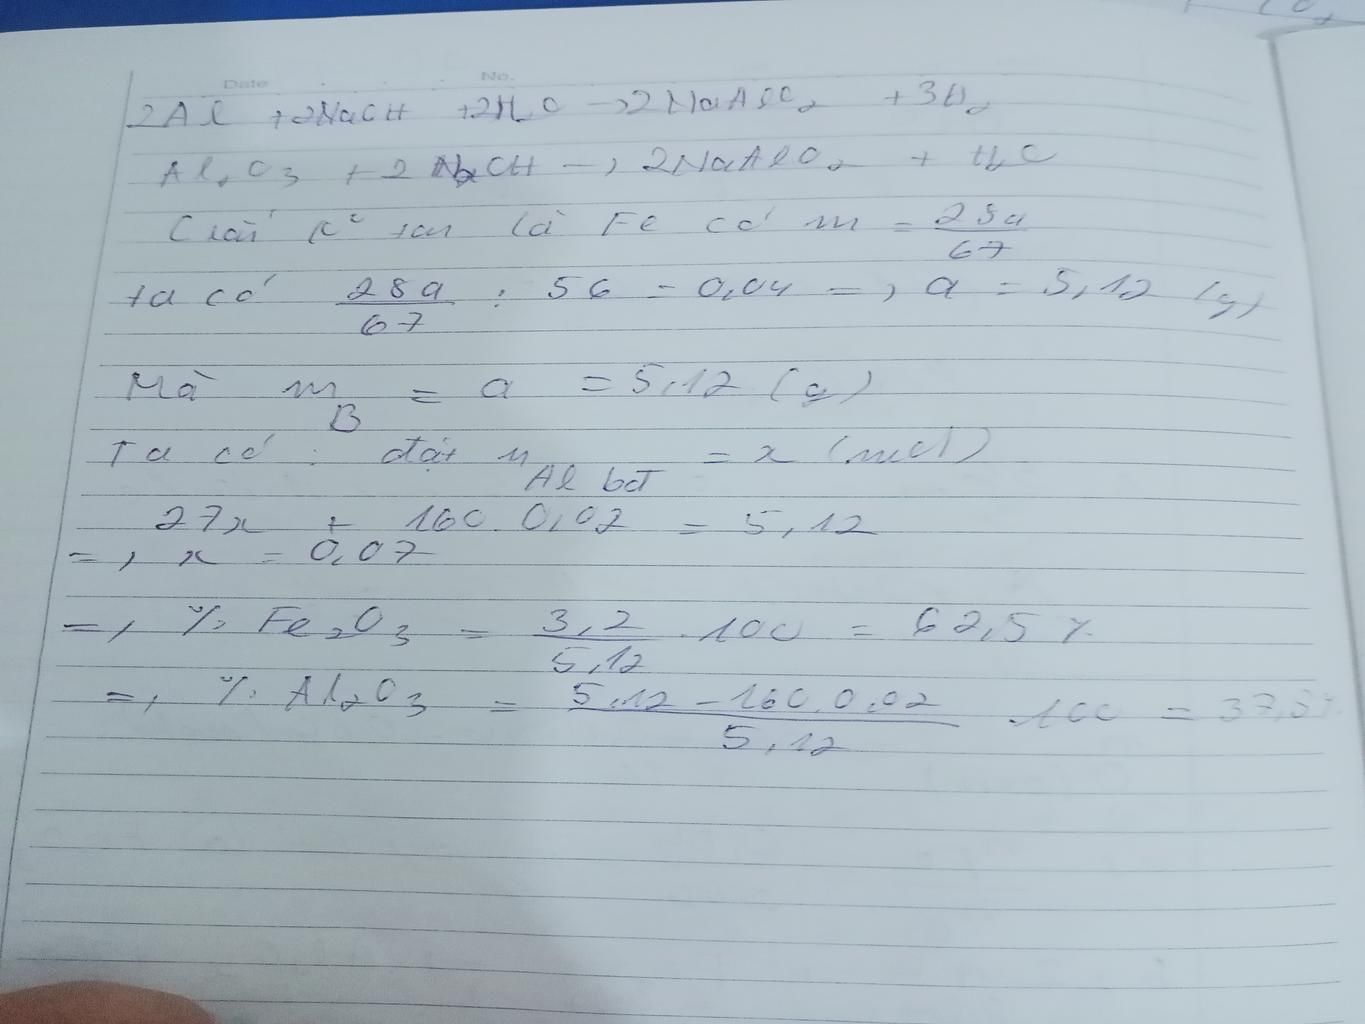 Date No.
2Al + 2NaOH + 2H₂O → 2NaAlO₂ + 3H₂
Al₂O₃ + 2NaOH → 2NaAlO₂ + H₂O
Chất rắn là Fe có m = 28a/67
ta có 28a/67 : 56 = 0,04 => a = 5,12 (g)
Mà m_B = a = 5,12 (g)
Ta có : đặt n_Al bđ = x (mol)
27x + 160.0,02 = 5,12
=> x = 0,07
=> % Fe₂O₃ = 3,2/5,12 .100 = 62,5%
=> % Al₂O₃ = 5,12 - 160.0,02/5,12 .100 = 37,5%